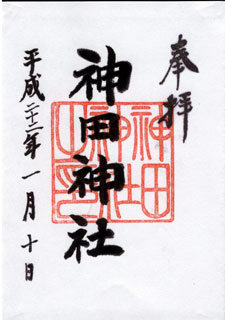 奉拝
神田神社
平成二十二年一月十日
神田神社之印